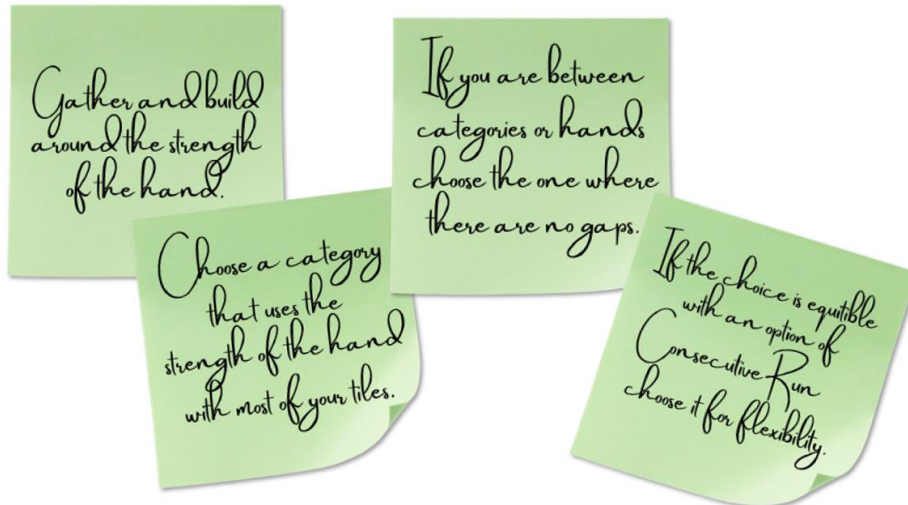 Gather and build
around the strength
of the hand.
Choose a category
that uses the
strength of the hand
with most of your tiles.
If you are between
categories or hands
choose the one where
there are no gaps.
If the choice is equitible
with an option of
Consecutive Run
choose it for flexibility.